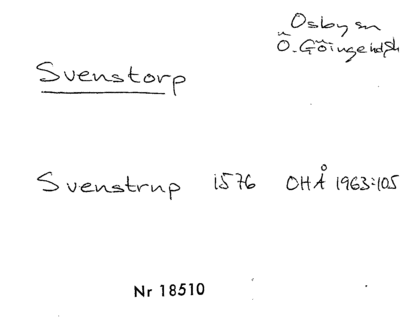 Osby sn
Ö. Göinge hd, Sk
Svenstorp
Svenstrup 1576 OHÅ 1963:105
Nr 18510